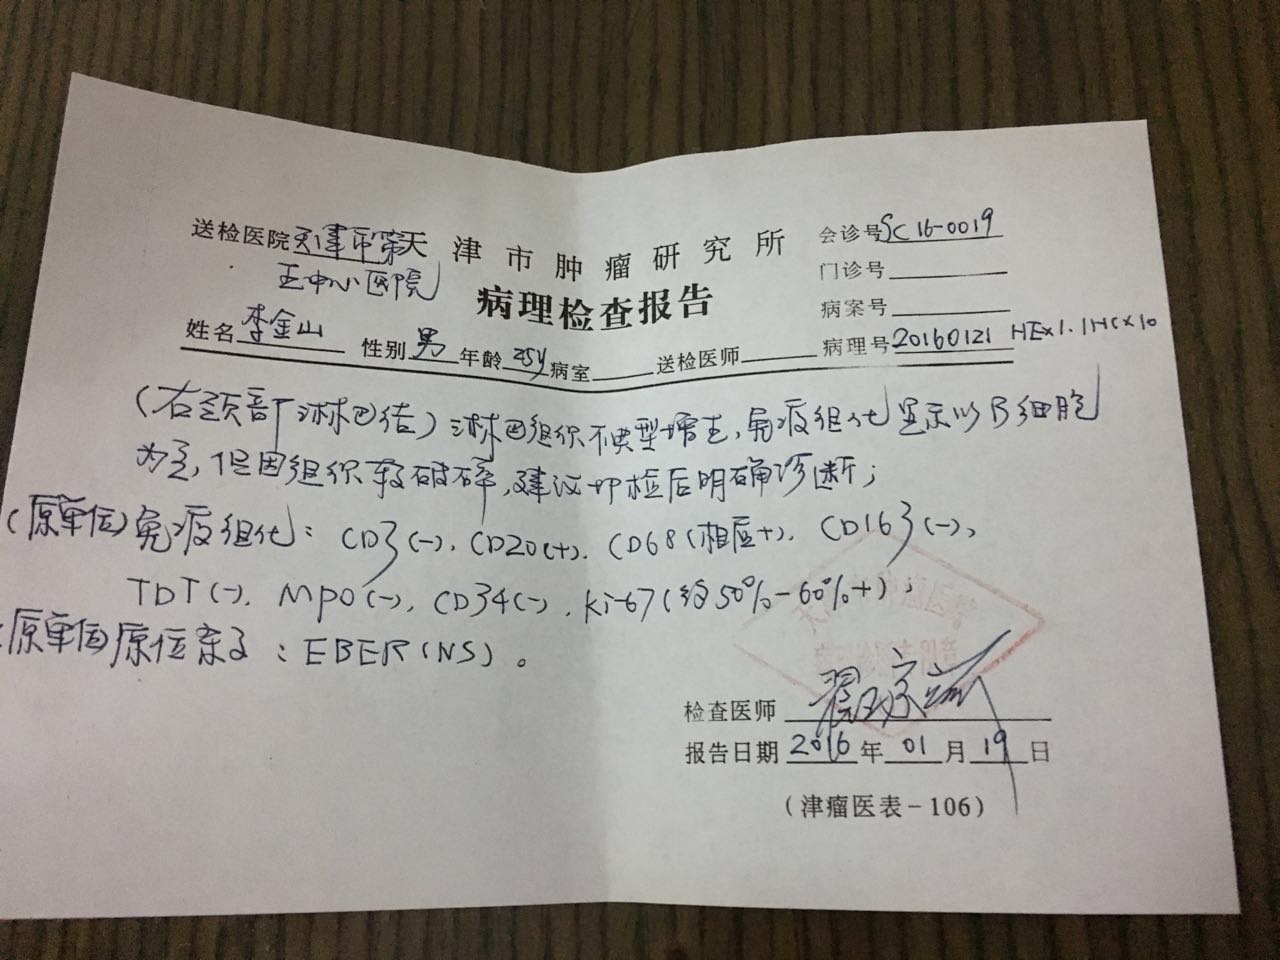 送检医院天津市第
五中心医院
天津市肿瘤研究所
病理检查报告
会诊号SC16-0019
门诊号
病案号
姓名李金山 性别男 年龄25y 病室 送检医师 病理号20160121 HEx1.IHCx10
(右颈部淋巴结)淋巴组织不典型增生,免疫组化显示以B细胞
为主,但因组织较破碎,建议切检后明确诊断;
(原单位)免疫组化:CD3(-),CD20(+),CD68(相应+),CD163(-),
TDT(-),MPO(-),CD34(-),Ki-67(约50%-60%+);
(原单位)原位杂交:EBER(NS)。
检查医师
报告日期2016年01月19日
(津瘤医表-106)